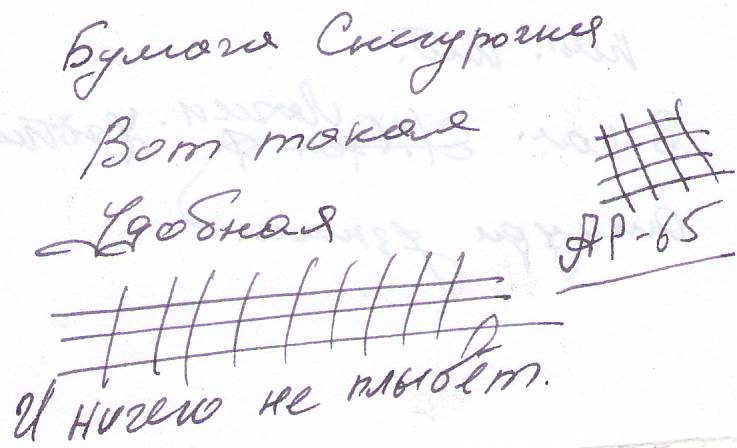 Бумага Снегурочка
Вот такая
Удобная
АР-65
И ничего не плывёт.